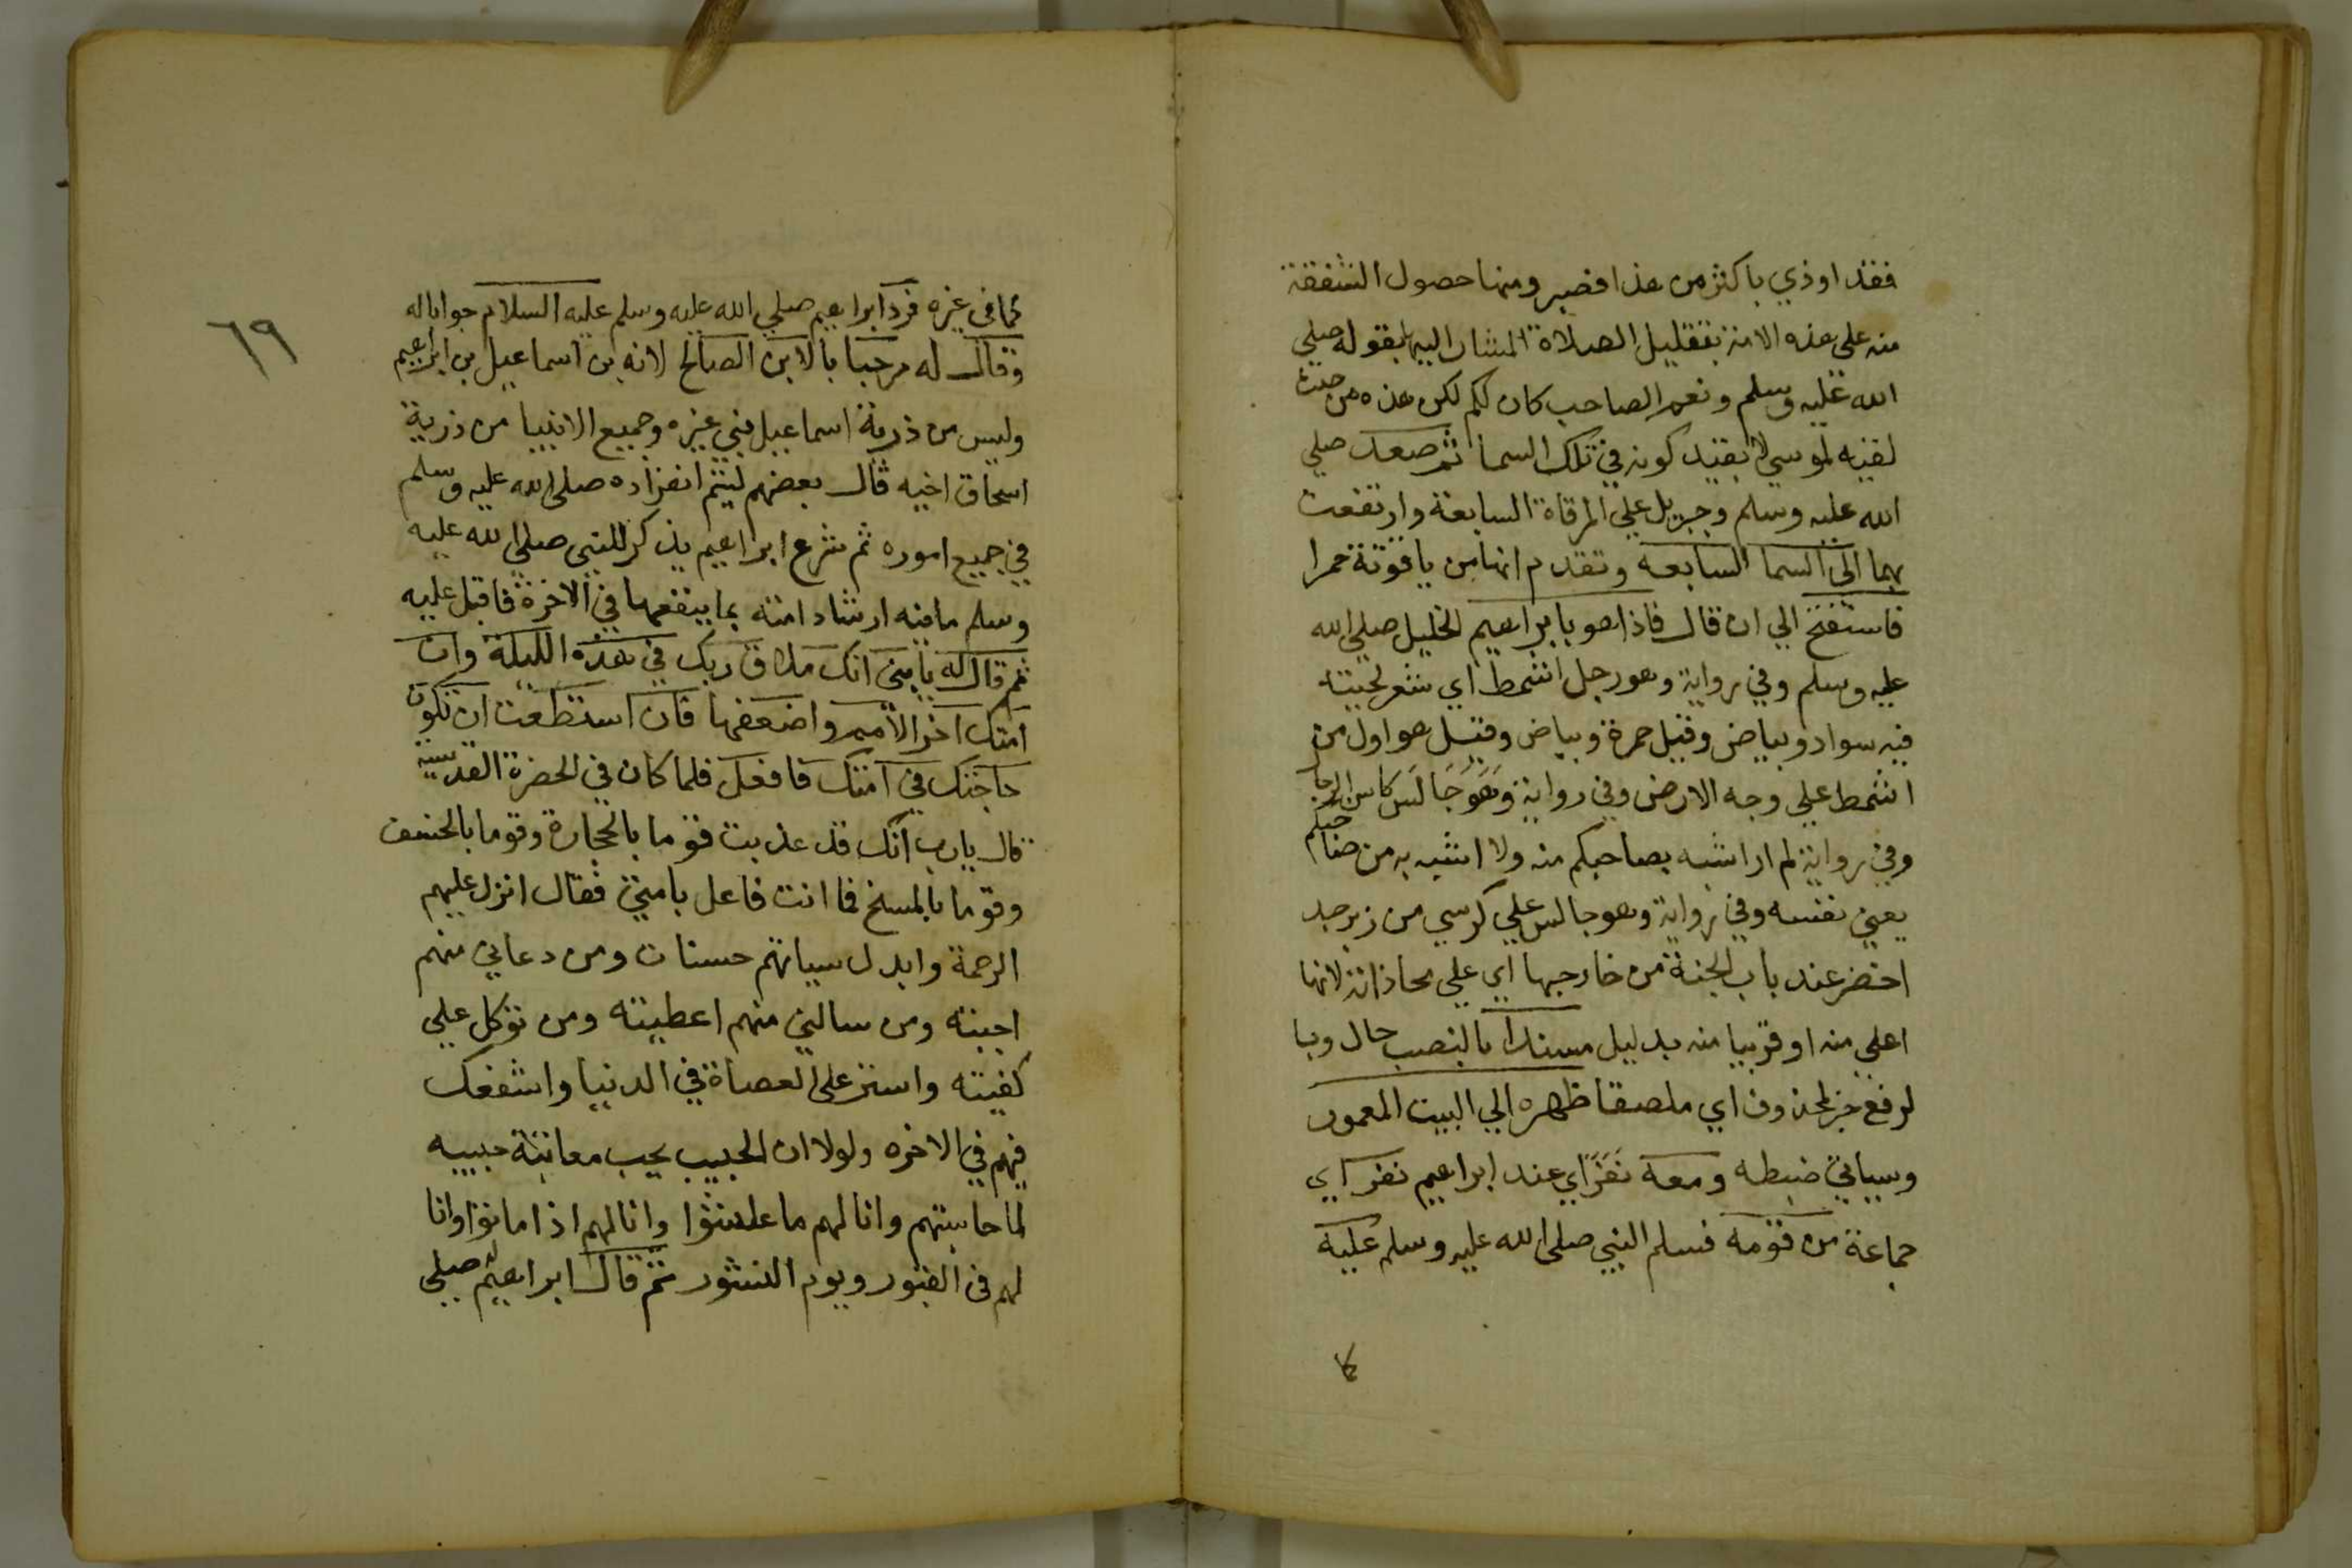 فقد اوذي باكثر من هذا فصبر ومنها حصول الشفقة
منه علي هذه الامة بتقليل الصلاة المشار اليها بقوله صلي
الله عليه وسلم ونعم الصاحب كان لكم لكن هذه من حيث
لقيه لموسي لا بقيد كونه في تلك السما ثم صعد صلي
الله عليه وسلم وجبريل علي المرقاة السابعة وارتفعت
بهما الي السما السابعه وتقدم انها من ياقوتة حمرا
فاستفتح الي ان قال فاذا هو بابراهيم الخليل صلي الله
عليه وسلم وفي رواية وهو رجل اشمط اي شعر لحيته
فيه سواد وبياض وقيل حمرة وبياض وقيل هو اول من
اشمط علي وجه الارض وفي رواية وهو جالس كاسن الرجا
وفي رواية لم ار اشبه بصاحبكم منه ولا اشبه به من صاحبكم
يعني نفسه وفي رواية وهو جالس علي كرسي من زبرجد
اخضر عند باب الجنة من خارجها اي علي محاذاته لانها
اعلي منه او قريبا منه بدليل مسندا بالنصب حال وبا
لرفع خبر لمحذوف اي ملصقا ظهره الي البيت المعمور
وسياتي ضبطه ومعه نفر اي عند ابراهيم نفر اي
جماعة من قومه فسلم النبي صلي الله عليه وسلم عليه
كما
٦٩
كما في غيره فرد ابراهيم صلي الله عليه وسلم عليه السلام جوابا له
وقال له مرحبا بالابن الصالح لانه بن اسماعيل بن ابراهيم
وليس من ذرية اسماعيل نبي غيره وجميع الانبيا من ذرية
اسحاق اخيه قال بعضهم ليتم انفراده صلي الله عليه وسلم
في جميع اموره ثم شرع ابراهيم يذكر للنبي صلي الله عليه
وسلم ما فيه ارشاد امته بما ينفعها في الاخرة فاقبل عليه
ثم قال له يا بني انك ملاق ربك في هذه الليلة وان
امتك اخر الامم واضعفها فان استطعت ان تكون
حاجتك في امتك فافعل فلما كان في الحضرة القدسية
قال يارب انك قد عذبت قوما بالحجارة وقوما بالخسف
وقوما بالمسخ فما انت فاعل بامتي فقال انزل عليهم
الرحمة وابدل سياتهم حسنات ومن دعاني منهم
اجبته ومن سالني منهم اعطيته ومن توكل علي
كفيته واستر علي العصاة في الدنيا واشفعك
فيهم في الاخره ولولا ان الحبيب يحب معاتبة حبيبه
لما حاسبتهم وانا لهم ما عاشوا وانا لهم اذا ماتوا وانا
لهم في القبور ويوم النشور ثم قال له ابراهيم صلي